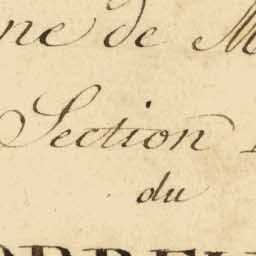 ne de M
Section
du